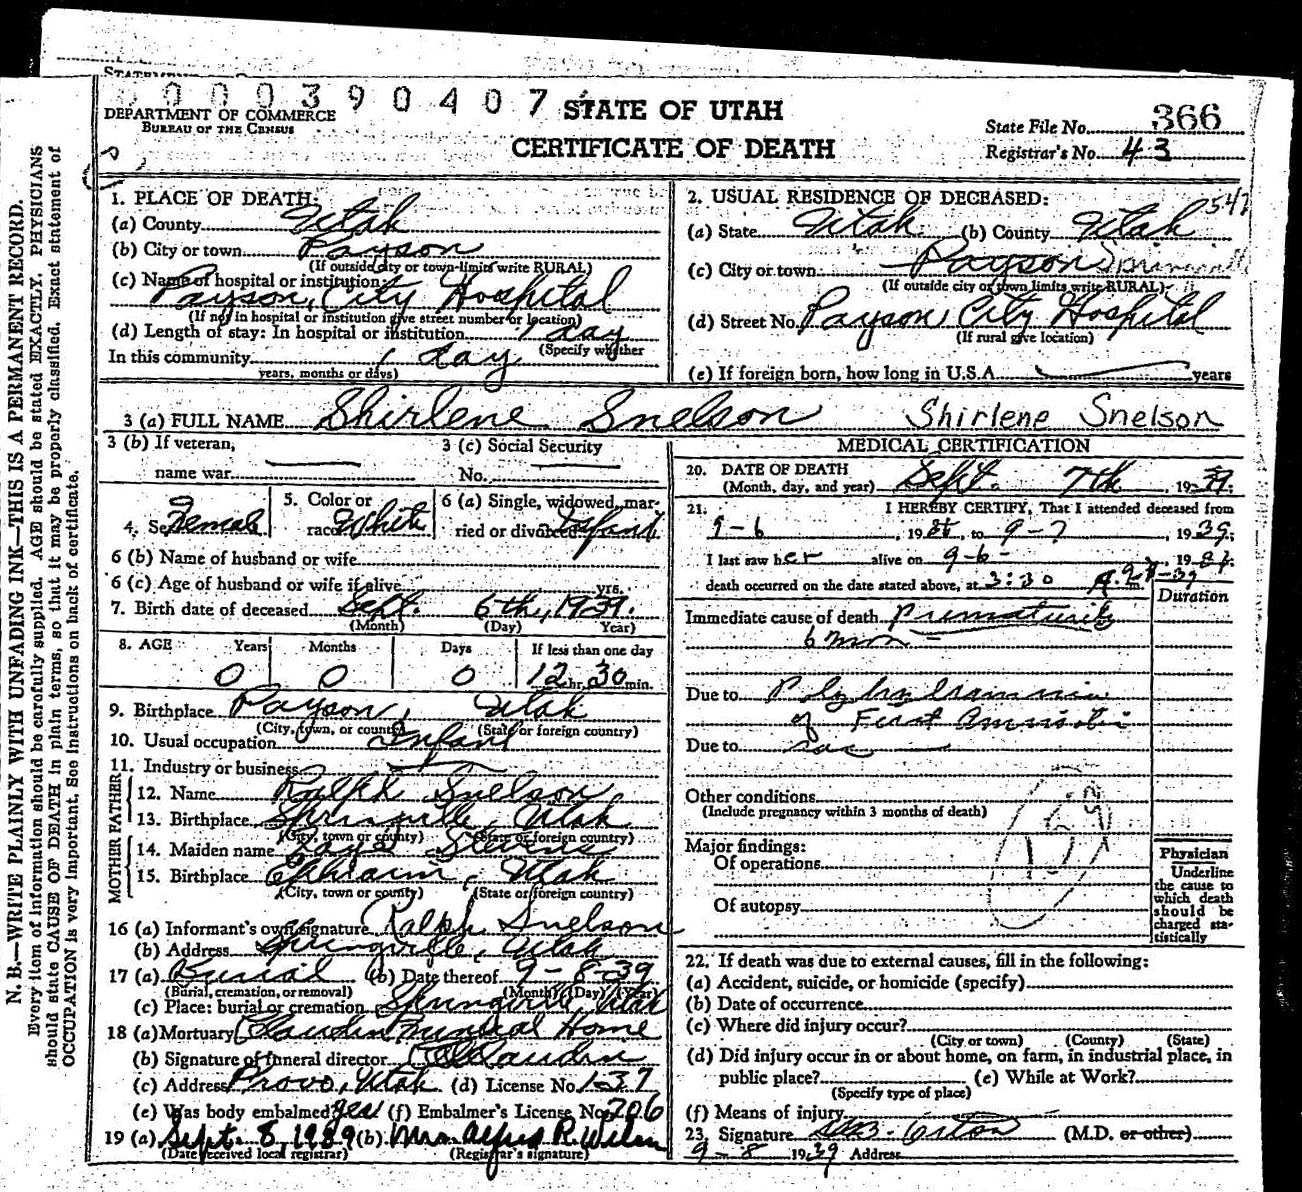 0000390407
DEPARTMENT OF COMMERCE
BUREAU OF THE CENSUS
STATE OF UTAH
CERTIFICATE OF DEATH
State File No. 366
Registrar's No. 43
N. B.—WRITE PLAINLY WITH UNFADING INK—THIS IS A PERMANENT RECORD.
Every item of information should be carefully supplied. AGE should be stated EXACTLY. PHYSICIANS
should state CAUSE OF DEATH in plain terms, so that it may be properly classified. Exact statement of
OCCUPATION is very important. See instructions on back of certificate.
1. PLACE OF DEATH:
(a) County Utah
(b) City or town Payson
(If outside city or town limits write RURAL)
(c) Name of hospital or institution:
Payson City Hospital
(If not in hospital or institution give street number or location)
(d) Length of stay: In hospital or institution 1 day
(Specify whether
In this community 1 day
years, months or days)
2. USUAL RESIDENCE OF DECEASED:
(a) State Utah (b) County Utah
(c) City or town Payson Springville
(If outside city or town limits write RURAL)
(d) Street No. Payson City Hospital
(If rural give location)
(e) If foreign born, how long in U.S.A. years
3 (a) FULL NAME Shirlene Snelson Shirlene Snelson
3 (b) If veteran,
name war
3 (c) Social Security
No.
4. Sex Female
5. Color or
race White
6 (a) Single, widowed, mar-
ried or divorced Infant
6 (b) Name of husband or wife
6 (c) Age of husband or wife if alive yrs.
7. Birth date of deceased Sept. 6th, 1939.
(Month) (Day) Year)
8. AGE Years Months Days If less than one day
0 0 0 12 hr. 30 min.
9. Birthplace Payson, Utah
(City, town, or county) (State or foreign country)
10. Usual occupation Infant
11. Industry or business
FATHER
12. Name Ralph Snelson
13. Birthplace Springville, Utah
(City, town or county) (State or foreign country)
MOTHER
14. Maiden name Stevens
15. Birthplace Ephraim, Utah
(City, town or county) (State or foreign country)
16 (a) Informant's own signature Ralph Snelson
(b) Address Springville, Utah
17 (a) Burial (b) Date thereof 9-8-39
(Burial, cremation, or removal) (Month) (Day) (Year)
(c) Place: burial or cremation Springville Utah
18 (a) Mortuary Claudin Funeral Home
(b) Signature of funeral director Claudin
(c) Address Provo, Utah (d) License No. 137
(e) Was body embalmed? yes (f) Embalmer's License No. 206
19 (a) Sept. 8, 1939 (b) Mrs. Alfred R. Wilson
(Date received local registrar) (Registrar's signature)
MEDICAL CERTIFICATION
20. DATE OF DEATH
(Month, day, and year) Sept. 7th, 1939.
21. I HEREBY CERTIFY, That I attended deceased from
9-6, 19 to 9-7, 1939;
I last saw her alive on 9-6-, 19
death occurred on the date stated above, at 3:30 A. m.
Duration
Immediate cause of death Prematurity
6 mon
Due to Polyhydramnios
of First Amniotic
Due to sac
Other conditions
(Include pregnancy within 3 months of death)
Major findings:
Of operations
Of autopsy
159
Physician
Underline
the cause to
which death
should be
charged sta-
tistically
22. If death was due to external causes, fill in the following:
(a) Accident, suicide, or homicide (specify)
(b) Date of occurrence
(c) Where did injury occur?
(City or town) (County) (State)
(d) Did injury occur in or about home, on farm, in industrial place, in
public place? (e) While at Work?
(Specify type of place)
(f) Means of injury
23. Signature Orton (M.D. or other)
9-8 1939 Address